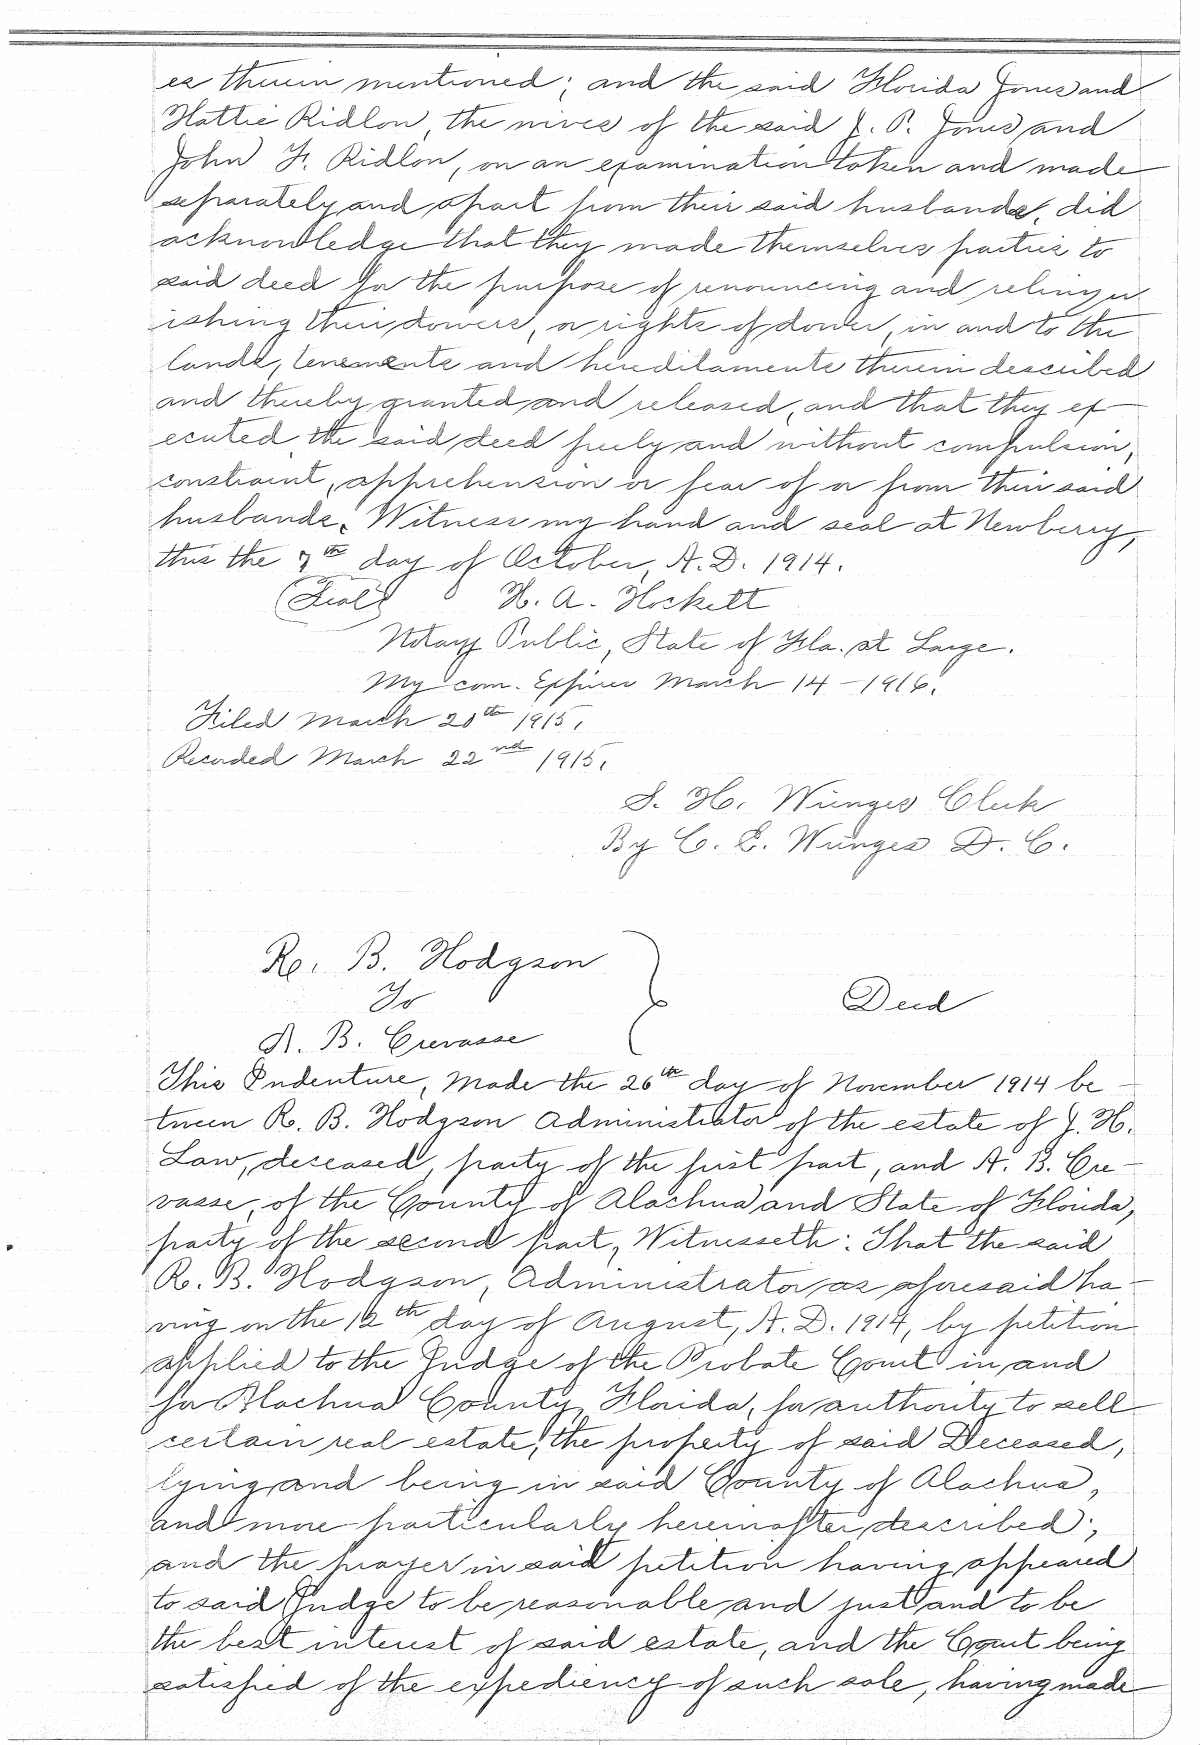 es therein mentioned; and the said Florida Jones and
Hattie Ridlon, the wives of the said J. P. Jones and
John F. Ridlon, on an examination taken and made
separately and apart from their said husbands, did
acknowledge that they made themselves parties to
said deed for the purpose of renouncing and relinqu
ishing their dowers, or rights of dower, in and to the
lands, tenements and hereditaments therein described
and thereby granted and released, and that they ex-
ecuted the said deed freely and without compulsion,
constraint, apprehension or fear of or from their said
husbands. Witness my hand and seal at Newberry,
this the 7th day of October, A.D. 1914.
(Seal) H. A. Hockett
Notary Public, State of Fla. at Large.
My com. Expires March 14-1916.
Filed March 20th 1915.
Recorded March 22nd 1915.
S. H. Wienges Clerk
By C. E. Wienges D. C.
R. B. Hodgson
To
A. B. Crevasse
Deed
This Indenture, Made the 26th day of November 1914 be-
tween R. B. Hodgson Administrator of the estate of J. H.
Law, deceased, party of the first part, and A. B. Cre-
vasse, of the County of Alachua and State of Florida,
party of the second part, Witnesseth: That the said
R. B. Hodgson, Administrator as aforesaid ha-
ving on the 12th day of August, A.D. 1914, by petition
applied to the Judge of the Probate Court in and
for Alachua County, Florida, for authority to sell
certain real estate, the property of said Deceased,
lying and being in said County of Alachua,
and more particularly hereinafter described;
and the prayer in said petition having appeared
to said Judge to be reasonable and just and to be
the best interest of said estate, and the Court being
satisfied of the expediency of such sale, having made